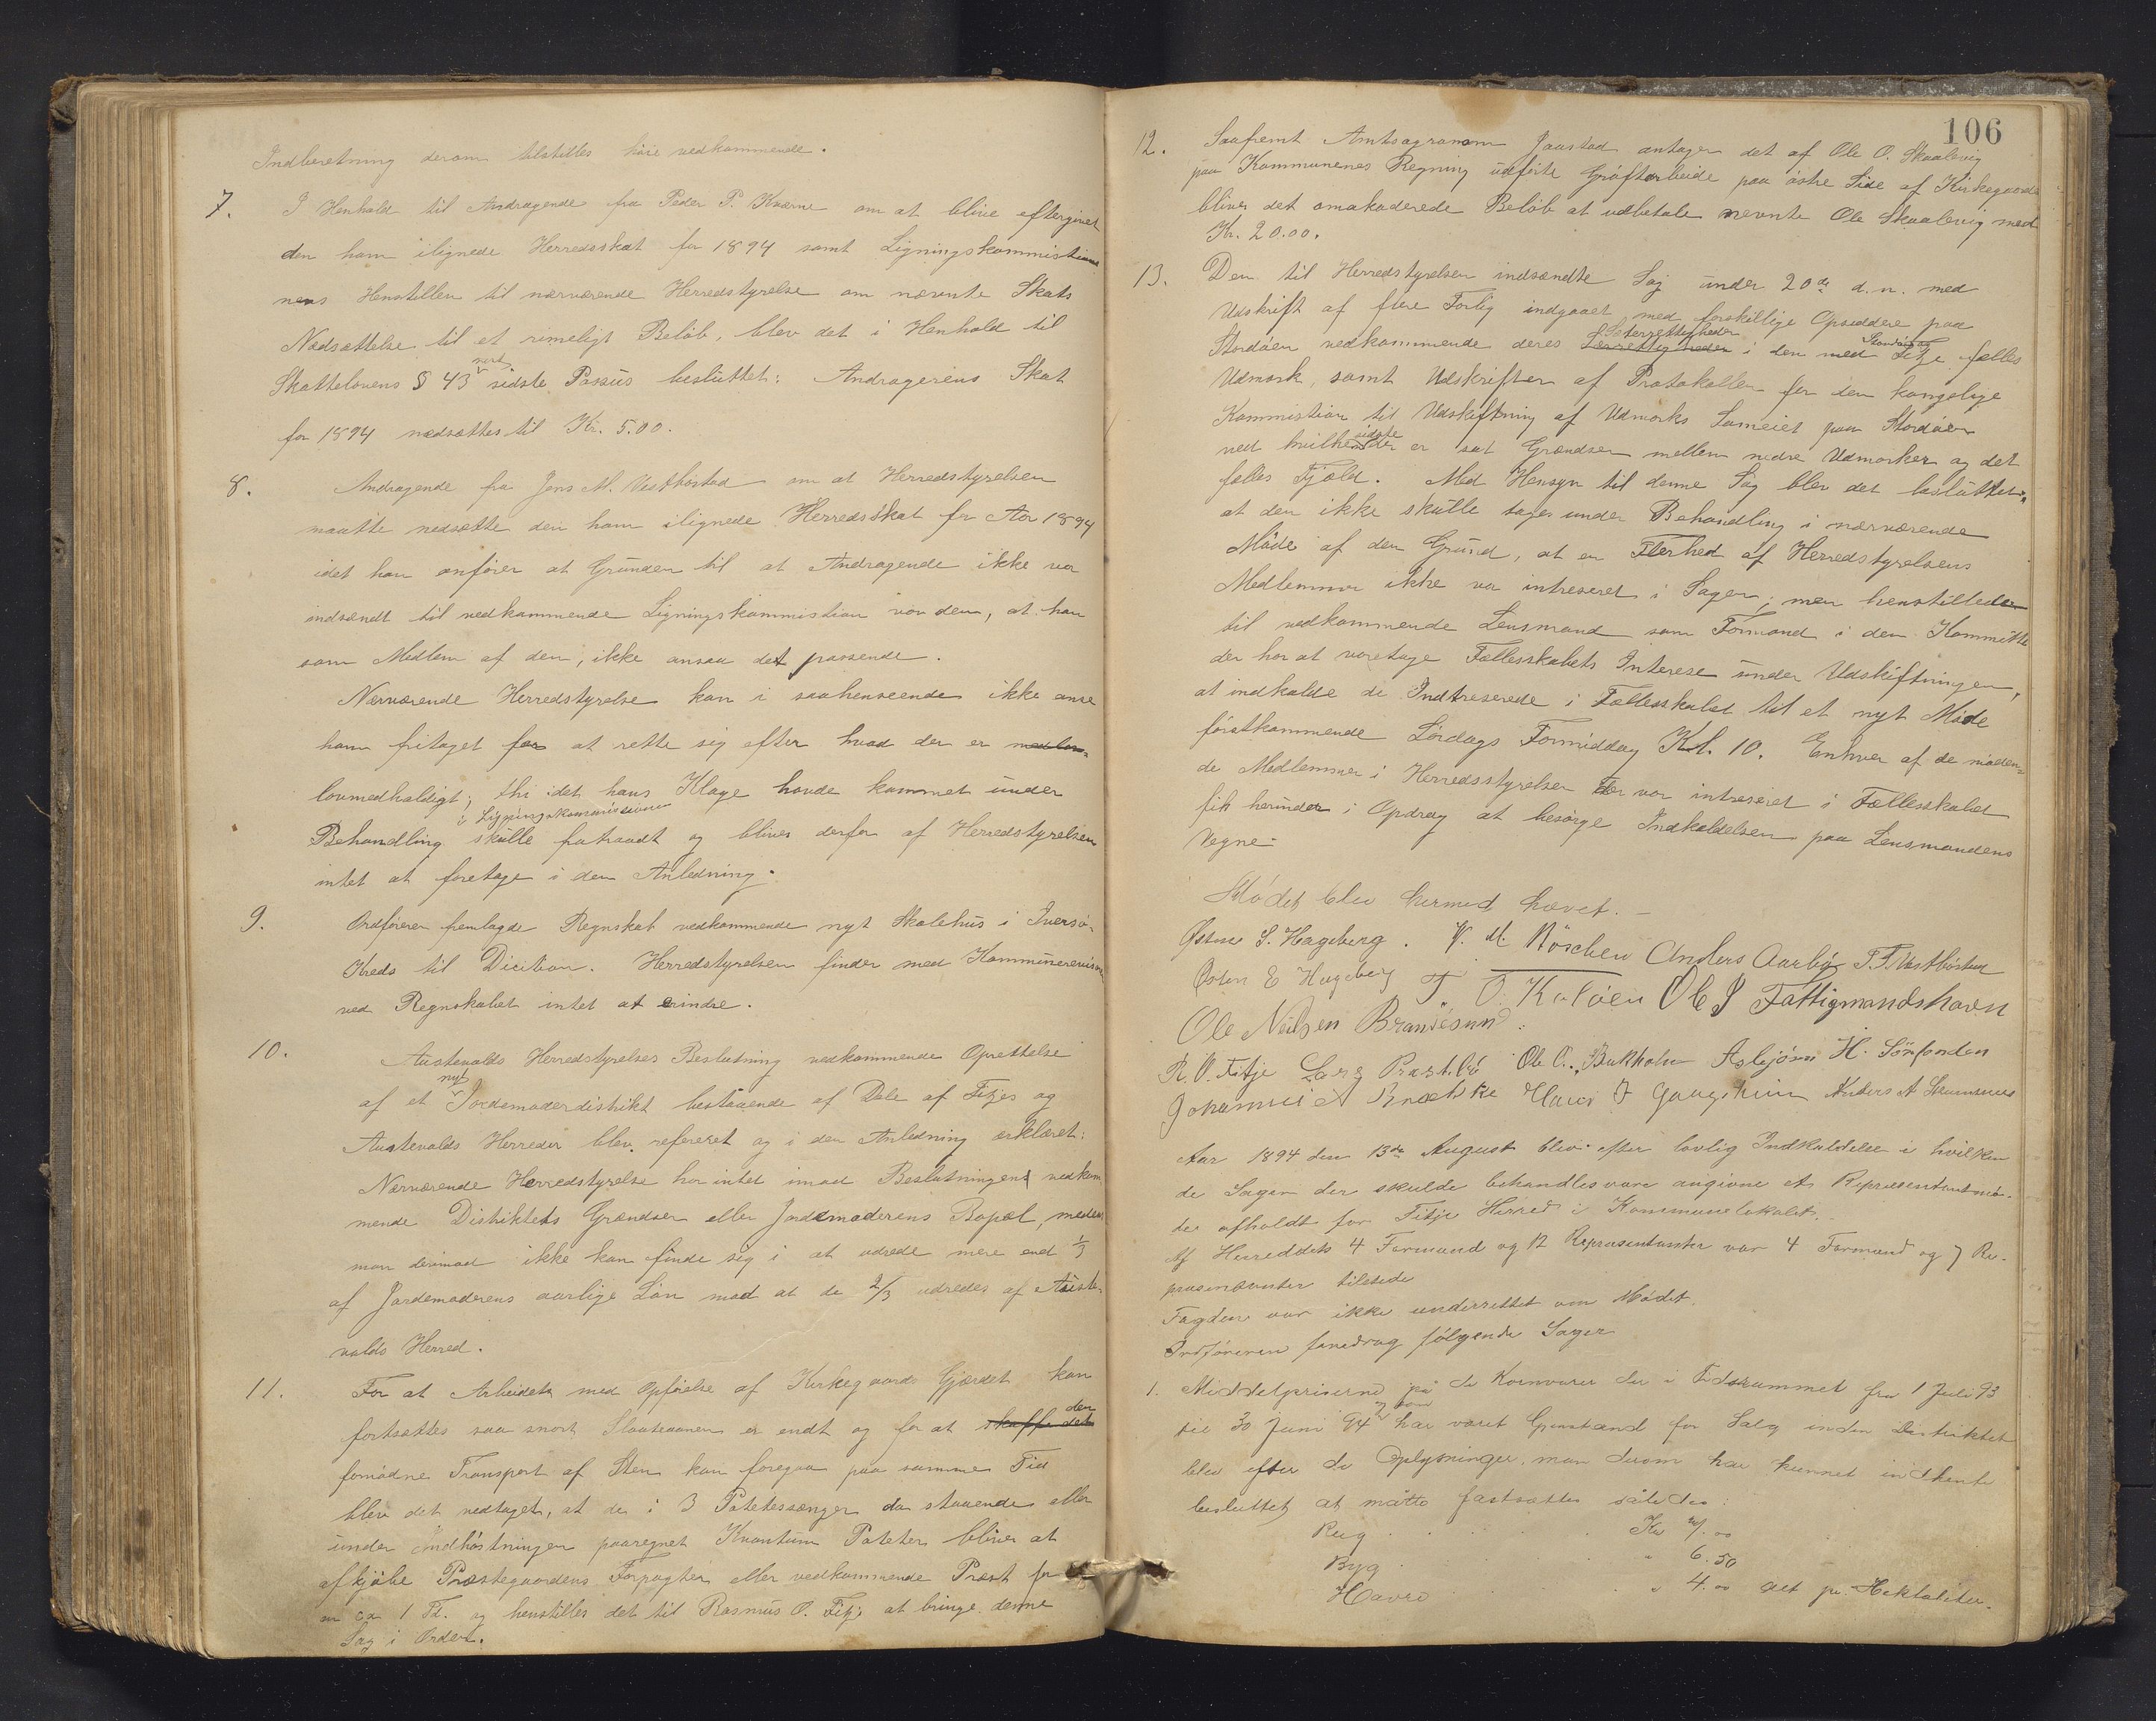 Indberetning derom tilstilles høie vedkommende.
7. I Henhold til Andragende fra Peder P. Kværne om at blive eftergivet
den ham ilignede Herredsskat for 1894 samt Ligningskommistionens
nens Henstillen til nærværende Herredstyrelse om nævnte Skats
Nedsættelse til et rimeligt Beløb, blev det i Henhold til
Skattelovens § 43 sidste Passus besluttet: Andragerens Skat
for 1894 nedsættes til Kr. 5.00.
8. Andragende fra Jens M. Vestbøstad om at Herredstyrelsen
maatte nedsætte den ham ilignede Herredsskat for Aar 1894
idet han anfører at Grunden til at Andragende ikke var
indsendt til vedkommende Ligningskommistion var den, at han
som Medlem af den, ikke ansaa det passende.
Nærværende Herredstyrelse kan i saahenseende ikke anse
ham fritaget for at rette sig efter hvad der er
lovmedholdigt; thi idet hans Klage havde kommet under
Behandling i Ligningskommissionen skulle fratraadt og bliver derfor af Herredstyrelsen
intet at foretage i den Anledning.
9. Ordfører fremlagde Regnskab vedkommende nyt Skolehus i Iversø-
Kreds til Dicition. Herredstyrelsen finder med Kommunerevisor
ved Regnskabet intet at erindre.
10. Austevolds Herredstyrelses Beslutning vedkommende Oprettelse
af et nyt Jordemoderdistrikt bestaaende af Dele af Fitjes og
Austevolds Herreder blev refereret og i den Anledning erklæret:
Nærværende Herredstyrelse har intet imod Beslutningens vedkom
mende Distriktets Grændser eller Jordemoderens Bopæl, medens
man derimod ikke kan finde sig i at udrede mere end 1/3
af Jordemoderens aarlige Løn mod at de 2/3 udredes af Auste
volds Herred.
11. For at Arbeidet med Opførelse af Kirkegaards Gjærdet kan
fortsættes saa snart Slaateaanen er endt og for at skaffe det den
fornødne Transport af Sten kan foregaa paa samme Tid
blev det vedtaget, at de i 3 Potetessænger da staaende eller
under Indhøstningen paaregnet Kvantum Poteter bliver at
afkjøbe Præstegaardens Forpagter eller vedkommende Præst for
en ca 1 Td. og henstilles det til Rasmus O. Fitje at bringe denne
Sag i Orden.
106
12. Saafremt Amtsagronom Jaastad antager det af Ole O. Skaalevig
paa Kommunenes Regning udførte Grøftarbeide paa østre Side af Kirkegaarden
bliver det omakoderede Beløb at udbetale nevnte Ole Skaalevig med
Kr. 20.00.
13. Den til Herredstyrelsen indsændte Sag under 20de d.m. med
Udskrift af flere Forlig indgaaet med forskillige Opsiddere paa
Stordøen vedkommende deres Særrettigheder Seterrettigheder i den med Fitje fælles
Udmark, samt Udskrifter af Protokollen for den kongelige
Kommistion til Udskiftning af Udmarks Sameiet paa Stordøen
ved hvilken sidste der er sat Grændser mellem nedre Udmarker og det
felles Fjæld. Med Hensyn til denne Sag blev det besluttet:
at den ikke skulle tages under Behandling i nærværende
Møde af den Grund, at en Flerhed af Herredstyrelsens
Medlemmer ikke var intreseret i Sagen; men henstilledes
til vedkommende Lensmand som Formand i den Kommitte
der har at varetage Fællesskabets Interese under Udskiftningen,
at indkalde de Indtreserede i Fællesskabet til et nyt Møde
førstkommende Lørdags Formiddag Kl. 10. Enhver af de møden-
de Medlemmer i Herredsstyrelsen der var intreseret i Fællesskabet
fik herunder i Opdrag at besørge Indkaldelsen paa Lensmandens
Vegne.
Mødet blev hermed hævet.
Østen S. Hageberg. Anders Aarbø T. T. Vestbøstad
Østen E Hageberg T. O. Kaløen Ole J Fattigmandshavn
Ole Nilsen Brandesund.
R. O. Fitje Lars Præstbø Ole O. Bukholm Asbjørn H. Sørfonden
Johannes A Hans J Anders A
Aar 1894 den 13de August blev efter lovlig Indkaldelse i hvilken
de Sager der skulde behandles vare angivne et Repræsentantmø-
de afholdt for Fitje Herred i Kommunelokalet.
Af Herreddets 4 Formænd og 12 Repræsentanter var 4 Formænd og 7 Re-
præsentanter tilstede
Fogden var ikke underrettet om Mødet.
Ordføreren foredrog følgende Sager
1. Middelpriserne på de Kornvarer der i Tidsrummet fra 1 Juli 93
til 30 Juni 94 har været Gjenstand for Salg inden Distriktet
blev efter de Oplysninger, man derom har kunnet indhente
besluttet at måtte fastsættes således:
Rug Kr
Byg " 6.50
Havre " 4.00 alt pr. Hektoliter.